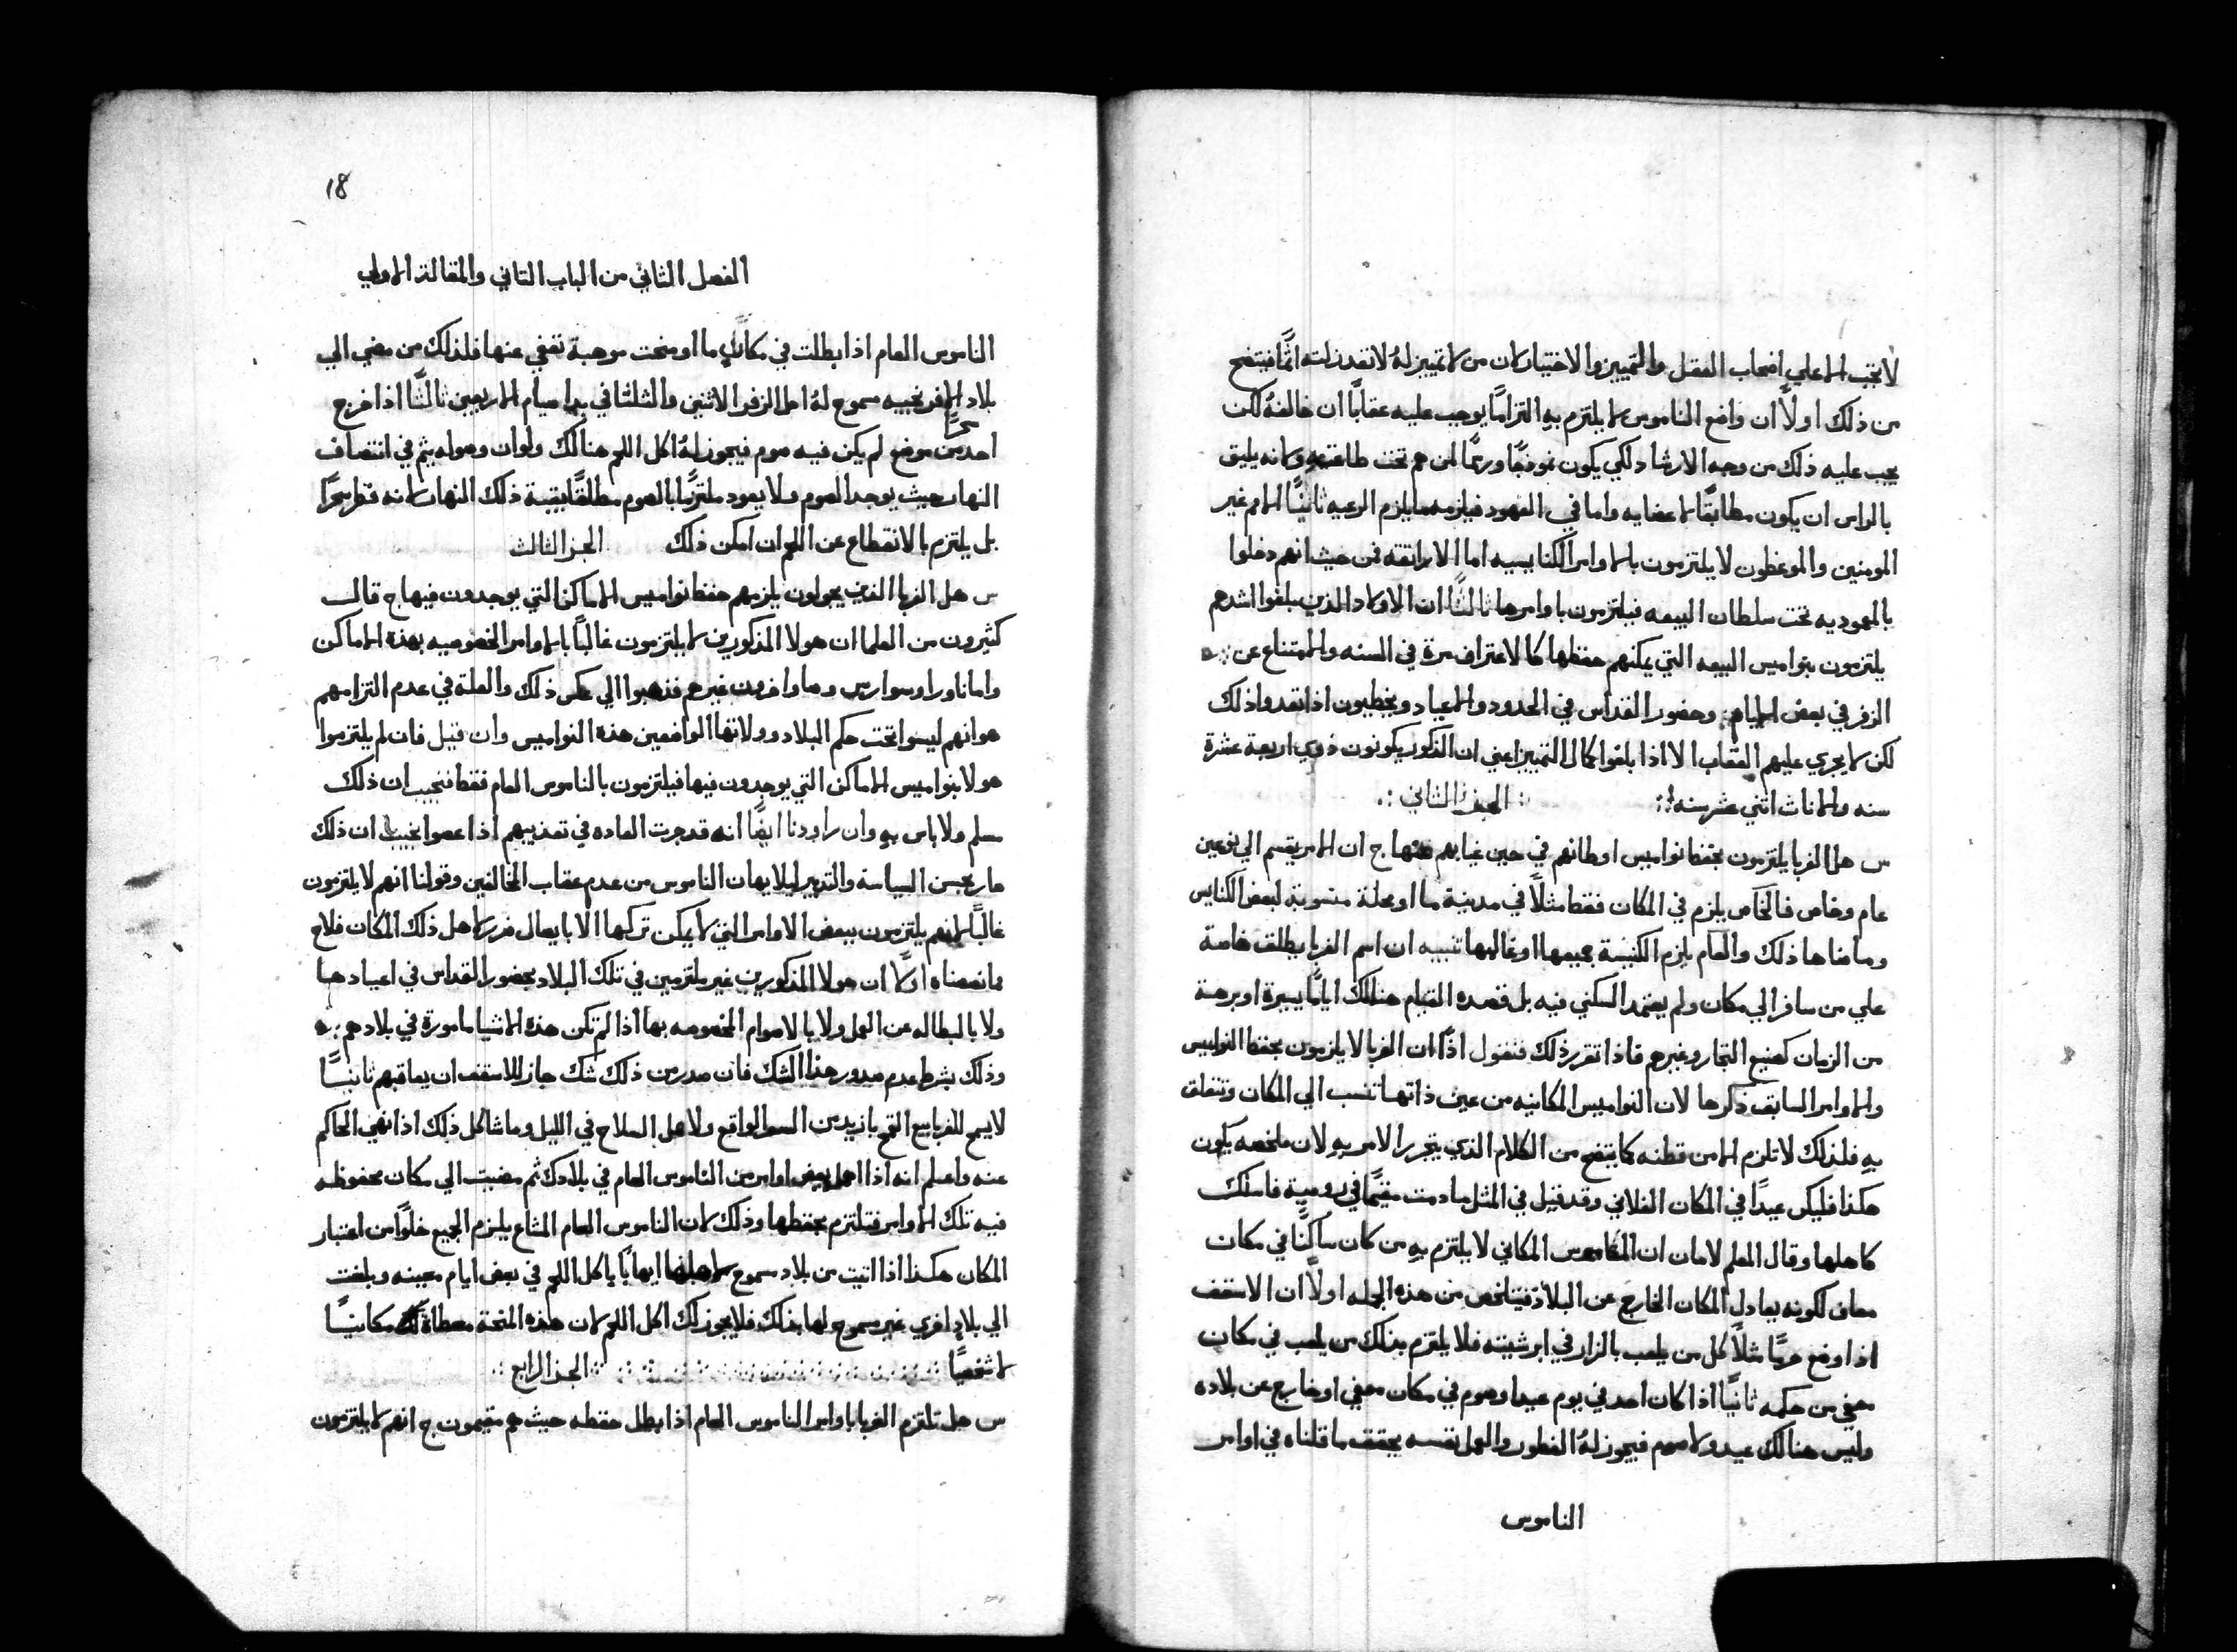 لا تجب الا علي اصحاب العقل والتمييز والاختيار لان من لا تمييز له لا تعد زلته اثمًا فيتضح
من ذلك اولاً ان واضع الناموس لا يلتزم به التزامًا يوجب عليه عقابًا ان خالفهُ لكن
يجب عليه ذلك من وجه الارشاد لكي يكون نموذجًا ورسمًا لمن هم تحت طاعته ولانه يليق
بالراس ان يكون مطابقًا لاعضايه واما في العهود فيلزمه ما يلزم الرعيه ثانيًا الامم غير
المومنين والموعظون لا يلتزمون بالاوامر الكنايسيه اما الاراتقه فمن حيث انهم دخلوا
بالمعموديه تحت سلطان البيعه فيلتزمون باوامرها ثالثًا ان الاولاد الذين بلغوا اشدهم
يلتزمون بنواميس البيعه التي يمكنهم حفظها كالاعتراف مرة في السنه والامتناع عن
الزفر في بعض الايام وحضور القداس في الحدود والاعياد ويخطيون اذا تعدوا ذلك
لكن لا يجري عليهم العقاب الا اذا بلغوا كمال التمييز اعني ان الذكور يكونون ذوي اربعة عشرة
سنه والاناث اثني عشر سنه الجز الثاني
س هل الغربا يلتزمون بحفظ نواميس اوطانهم في حين غيابهم عنها ج ان الامر يقسم الي نوعين
عام وخاص فالخاص يلزم في المكان فقط مثلاً في مدينة ما او محلة منسوبة لبعض الكنايس
وما ضاها ذلك والعام يلزم الكنيسة جميعها او غالبها تنبيه ان اسم الغربا يطلق خاصة
علي من سافر الي مكان ولم يعتمد السكني فيه بل قصده القيام هنالك ايامًا يسيرة او برهة
من الزمان كصنيع التجار وغيرهم فاذا تقرر ذلك فنقول اذًا ان الغربا لا يلزمون بحفظ النواميس
والاوامر السابق ذكرها لان النواميس المكانيه من عين ذاتها تنسب الي المكان وتتعلق
به فلذلك لا تلزم الا من قطنه كما يتضح من الكلام الذي يتحرر الامر به لان ملخصه يكون
هكذا فليكن عيدًا في المكان الفلاني وقد قيل في المثل ما دمت مقيمًا في رومية فاسلك
كاهلها وقال المعلم لامان ان الناموس المكاني لا يلتزم به من كان ساكنًا في مكان
معاف لكونه يعادل المكان الخارج عن البلاد فيتلخص من هذه الجمله اولاً ان الاسقف
اذا وضع حرمًا مثلاً كل من يلعب بالزار في ابرشيته فلا يلتزم بذلك من يلعب في مكان
معفي من حكمه ثانيًا اذا كان احد في يوم عيد او صوم في مكان معفي او خارج عن بلاده
وليس هنالك عيد ولا صوم فيجوز لهُ الفطور والعمل نفسه يحقق ما قلناه في اوامر
الناموس
18
الفصل الثاني من الباب الثاني والمقالة الاولي
الناموس العام اذا بطلت في مكان ما او منحت موهبة تعفي عنها فلذلك من مضي الي
بلاد الافرنجيه مسموح لهُ اكل الزفر الاثنين والثلثا في بدا صيام الاربعين ثالثًا اذا خرج
سحرًا
احد من موضع لم يكن فيه صوم فيجوز لهُ اكل اللحم هنالك ولو ان وصوله يتم في انتصاف
النهار حيث يوجد الصوم ولا يعود ملتزمًا بالصوم مطلقًا بقية ذلك النهار لانه فطر سحرًا
بل يلتزم بالانقطاع عن اللحم ان امكن ذلك الجز الثالث
س هل الغربا الذين يجولون يلزمهم حفظ نواميس الاماكن التي يوجدون فيها ج قال
كثيرون من العلما ان هولا المذكورين لا يلتزمون غالبًا بالاوامر الخصوصيه بهذه الاماكن
واما ناورا وسوارس وها واخرون غيرهم فذهبوا الي عكس ذلك والعلة في عدم التزامهم
هو انهم ليسوا تحت حكم البلاد وولاتها الواضعين هذه النواميس وان قيل فان لم يلتزموا
هولا بنواميس الاماكن التي يوجدون فيها فيلتزمون بالناموس العام فقط فنجيب ان ذلك
مسلم ولا باس به وان راودنا ايضًا انه قد جرت العاده في تعذيبهم اذا عصوا نجيب ان ذلك
صار بحسن السياسة والتدبير ليلا يهان الناموس من عدم عقاب المخالفين وقولنا انهم لا يلتزمون
غالبًا لانهم يلتزمون ببعض الاوامر التي لا يمكن تركها الا بايصال ضرر لاهل ذلك المكان فلاح
مما نصصناه اولاً ان هولا المذكورين غير ملتزمين في تلك البلاد بحضور القداس في اعيادها
ولا بالبطاله عن العمل ولا بالاصوام المخصوصه بها اذا لم تكن هذه الاشيا مامورة في بلادهم
وذلك بشرط عدم صدور هذا الشك فان صدر من ذلك شك جاز للاسقف ان يعاقبهم ثانيًا
لا يسمح للغربا بيع القمح بازيد من السعر الواقع ولا حمل السلاح في الليل وما شاكل ذلك اذا نهي الحاكم
عنه واعلم انه اذا اهمل بعض اوامر من الناموس العام في بلادك ثم مضيت الي مكان محفوظه
فيه تلك الاوامر فتلتزم بحفظها وذلك لان الناموس العام المشاع يلزم الجميع خلوًا من اعتبار
المكان هكذا اذا اتيت من بلاد مسموح لاهلها ايهابًا باكل اللحم في بعض ايام معينه وبلغت
الي بلاد اخري غير مسموح لها بذلك فلا يجوز لك اكل اللحم لان هذه المنحة معطاة لك مكانيًا
لا شخصيًا الجز الرابع
س هل تلتزم الغربا باوامر الناموس العام اذا بطل حفظه حيث هم مقيمون ج انهم لا يلتزمون